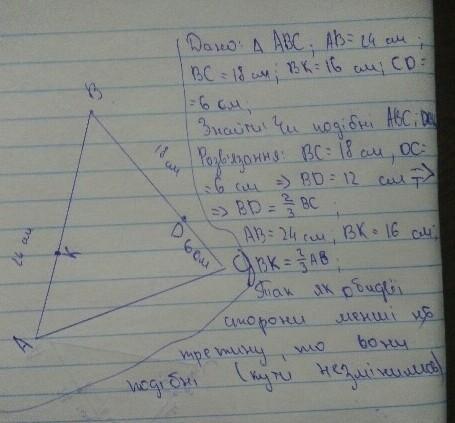 Дано: Δ ABC; AB = 24 см;
BC = 18 см; BK = 16 см; CD =
= 6 см;
Знайти: Чи подібні ABC;
Розв'язання: BC = 18 см, DC =
= 6 см ⇒ BD = 12 см ⇒
⇒ BD = 2/3 BC;
AB = 24 см, BK = 16 см;
BK = 2/3 AB;
Так як обидві
сторони менші на
третину, то вони
подібні (кути незмінились)
B
18 см
D
6 см
24 см
K
C
A